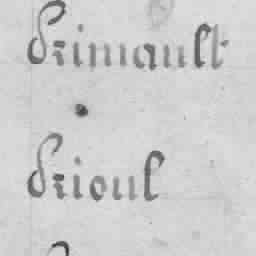 Drimault
Drioul